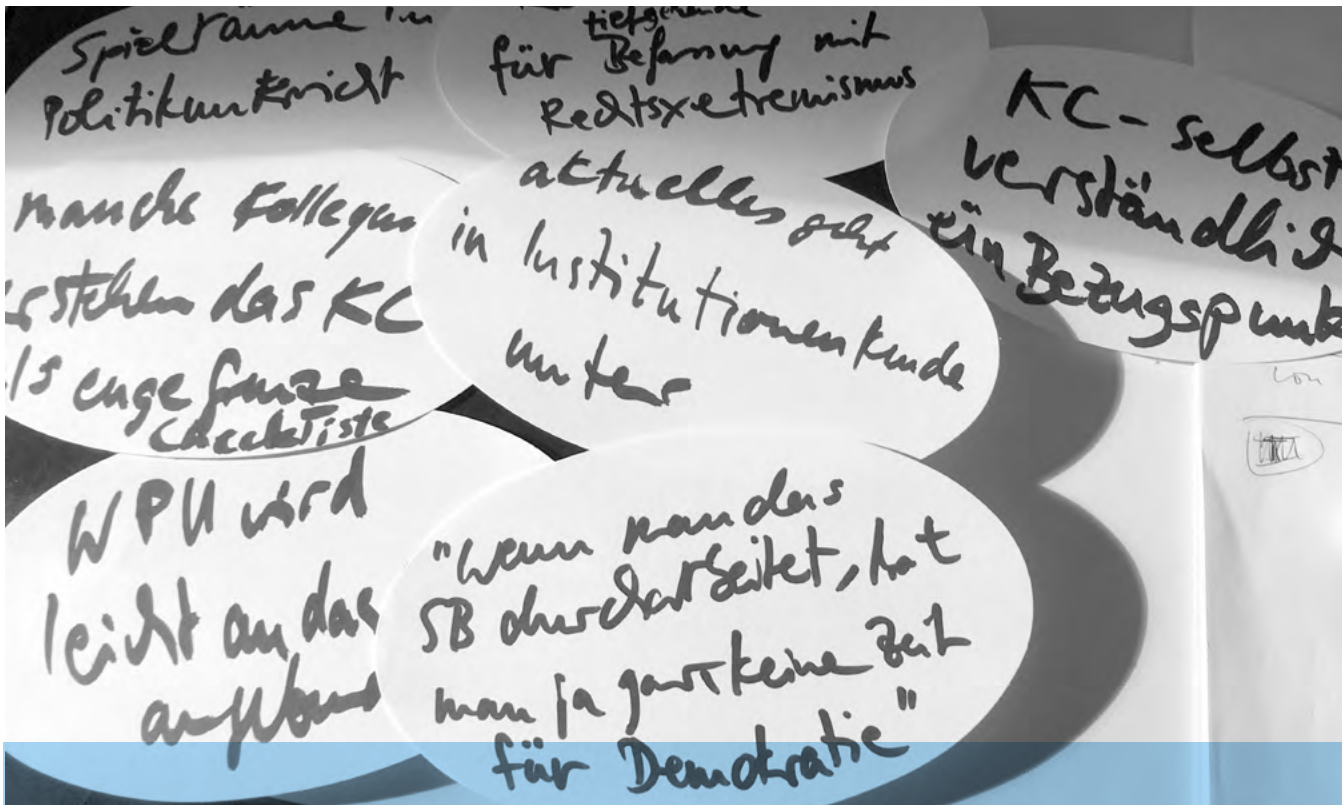 Spielräume in
Politikunterricht
tiefgehende
für Befassung mit
Rechtsxetremismus
KC - selbst
verständlich
ein Bezugspunk
manche Kollegen
rstehen das KC
ls enge
Checkliste
aktuelles geht
in Institutionenkunde
unter
WPU wird
leicht an das
"wenn man das
SB durcharbeitet, hat
man ja gar keine Zeit
für Demokratie"